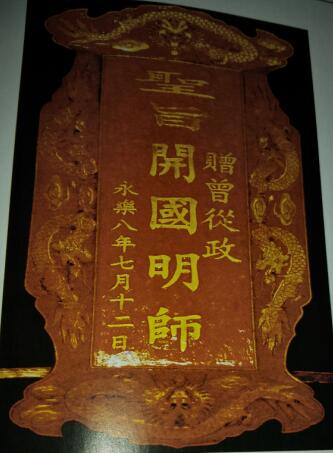 贈曾從政
聖旨開國明師
永樂八年七月十二日